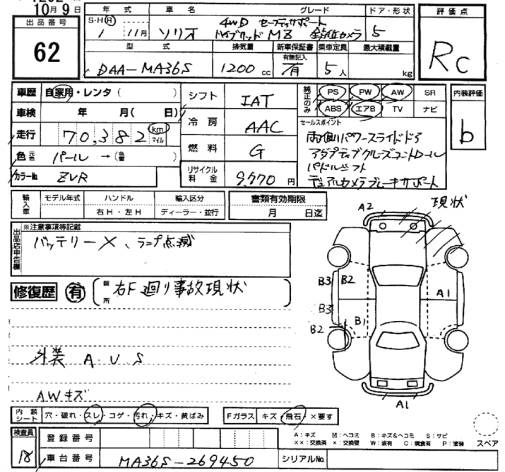 10月9日
出品番号
62
年式 車名 グレード ドア・形状
S・H・R 1年 11月 ソリオ 4WD セーフティサポート ハイブリッドMZ 全方位カメラ 5
型式 排気量 新車保証書 有無記入 乗車定員 最大積載量
DAA-MA36S 1200cc 有 5人 kg
評価点
Rc
車歴 自家用・レンタ( )
車検 年 月( 日)
走行 70,382 km マイル
色 元色 パール →(替 )
カラーNo ZVR
シフト IAT
冷房 AAC
燃料 G
リサイクル料金 9,770円
純正のみ PS PW AW SR
ABS エアB TV ナビ
セールスポイント
両側パワースライドドア
アダプティブクルーズコントロール
パドルシフト
デュアルカメラブレーキサポート
内装評価
b
輸入車 モデル年式 ハンドル 輸入区分
年 右H・左H ディーラー・並行
書類有効期限
月 日迄
出品店申告欄
※注意事項等記載
バッテリーX、ランプ点滅
修復歴 有 箇所 右F廻り事故現状
外装 A U S
AWキズ
現状
A2
B3 B2
A1
B3 B1
B2
A1
内装シート 穴・破れ・スレ・コゲ・汚れ・キズ・黄ばみ
Fガラス キズ・飛石・×要す
検査員
18
登録番号
車台番号 MA36S-269450
シリアルNo.
A:キズ M:ヘコミ B:キズ&ヘコミ S:サビ
スペア